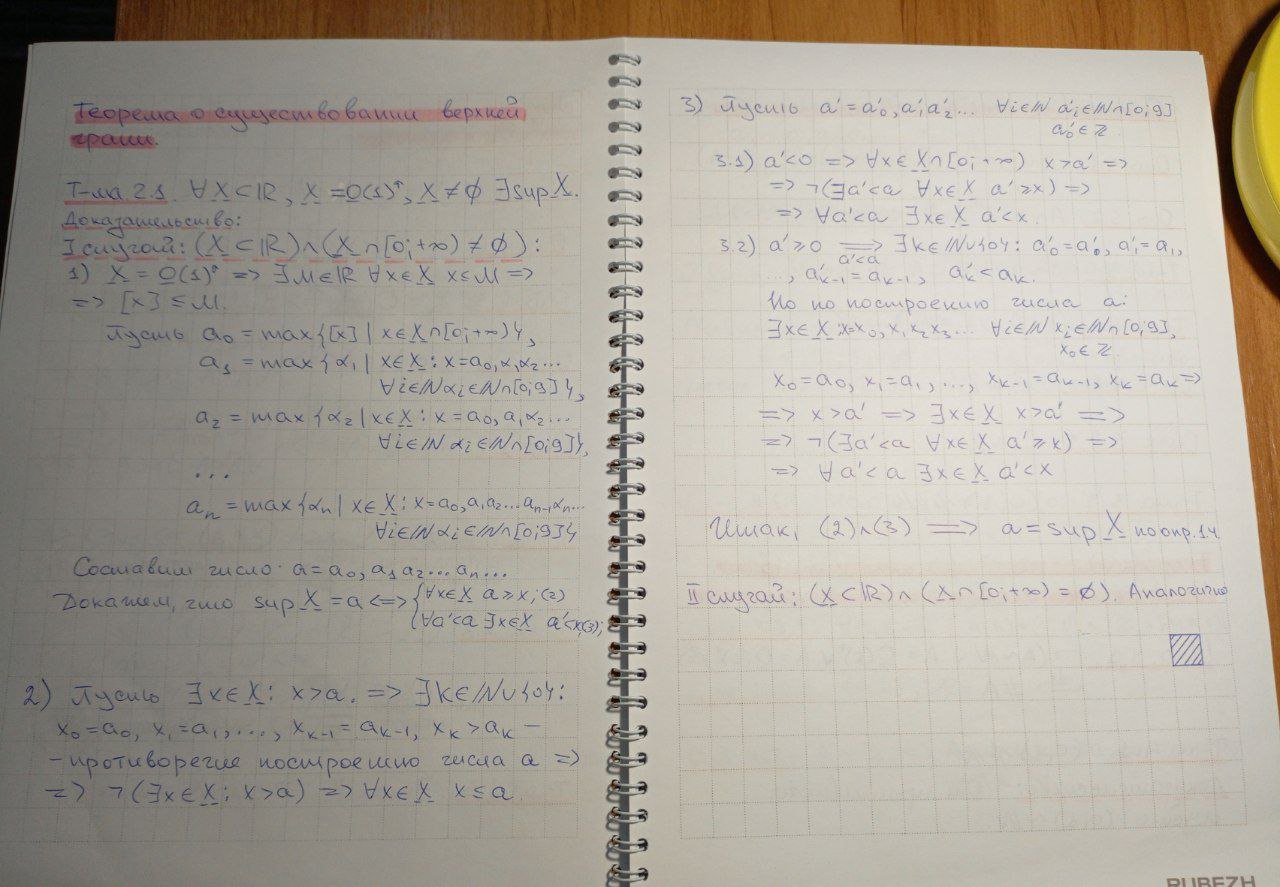 Теорема о существовании верхней
грани.
Т-ма 2.1. ∀X⊂ℝ, X = O(1)↑, X ≠ ∅ ∃ sup X.
Доказательство:
I случай: (X ⊂ ℝ) ∧ (X ∩ [0;+∞) ≠ ∅):
1) X = O(1)↑ => ∃M∈ℝ ∀x∈X x≤M =>
=> [x] ≤ M.
Пусть a₀ = max{[x] | x∈X∩[0;+∞)},
a₁ = max{α₁ | x∈X: x=a₀,α₁α₂...
∀i∈ℕ αᵢ∈ℕ∩[0;9]},
a₂ = max{α₂ | x∈X: x=a₀,a₁α₂...
∀i∈ℕ αᵢ∈ℕ∩[0;9]},
...
aₙ = max{αₙ | x∈X: x=a₀,a₁a₂...aₙ₋₁αₙ...
∀i∈ℕ αᵢ∈ℕ∩[0;9]}
Составим число a=a₀,a₁a₂...aₙ...
Докажем, что sup X = a <=> { ∀x∈X a≥x; (2)
{ ∀a'<a ∃x∈X a'<x; (3);
2) Пусть ∃x∈X: x>a. => ∃k∈ℕ∪{0}:
x₀=a₀, x₁=a₁, ..., xₖ₋₁=aₖ₋₁, xₖ>aₖ –
– противоречие построению числа a =>
=> ¬(∃x∈X: x>a) => ∀x∈X x≤a.
3) Пусть a'=a'₀,a'₁a'₂... ∀i∈ℕ a'ᵢ∈ℕ∩[0;9]
a'₀∈ℤ.
3.1) a'<0 => ∀x∈X∩[0;+∞) x>a' =>
=> ¬(∃a'<a ∀x∈X a'≥x) =>
=> ∀a'<a ∃x∈X a'<x.
3.2) a'≥0 => ∃k∈ℕ∪{0}: a'₀=a'₀, a'₁=a₁,
a'<a
, a'ₖ₋₁=aₖ₋₁, a'ₖ<aₖ.
Но по построению числа a:
∃x∈X: x=x₀,x₁x₂x₃... ∀i∈ℕ xᵢ∈ℕ∩[0;9],
x₀∈ℤ.
x₀=a₀, x₁=a₁, ..., xₖ₋₁=aₖ₋₁, xₖ=aₖ =>
=> x>a' => ∃x∈X x>a' =>
=> ¬(∃a'<a ∀x∈X a'≥x) =>
=> ∀a'<a ∃x∈X a'<x
Итак, (2)∧(3) => a=sup X по опр. 1.4.
II случай: (X⊂ℝ)∧(X∩[0;+∞)=∅). Аналогично
RUBEZH